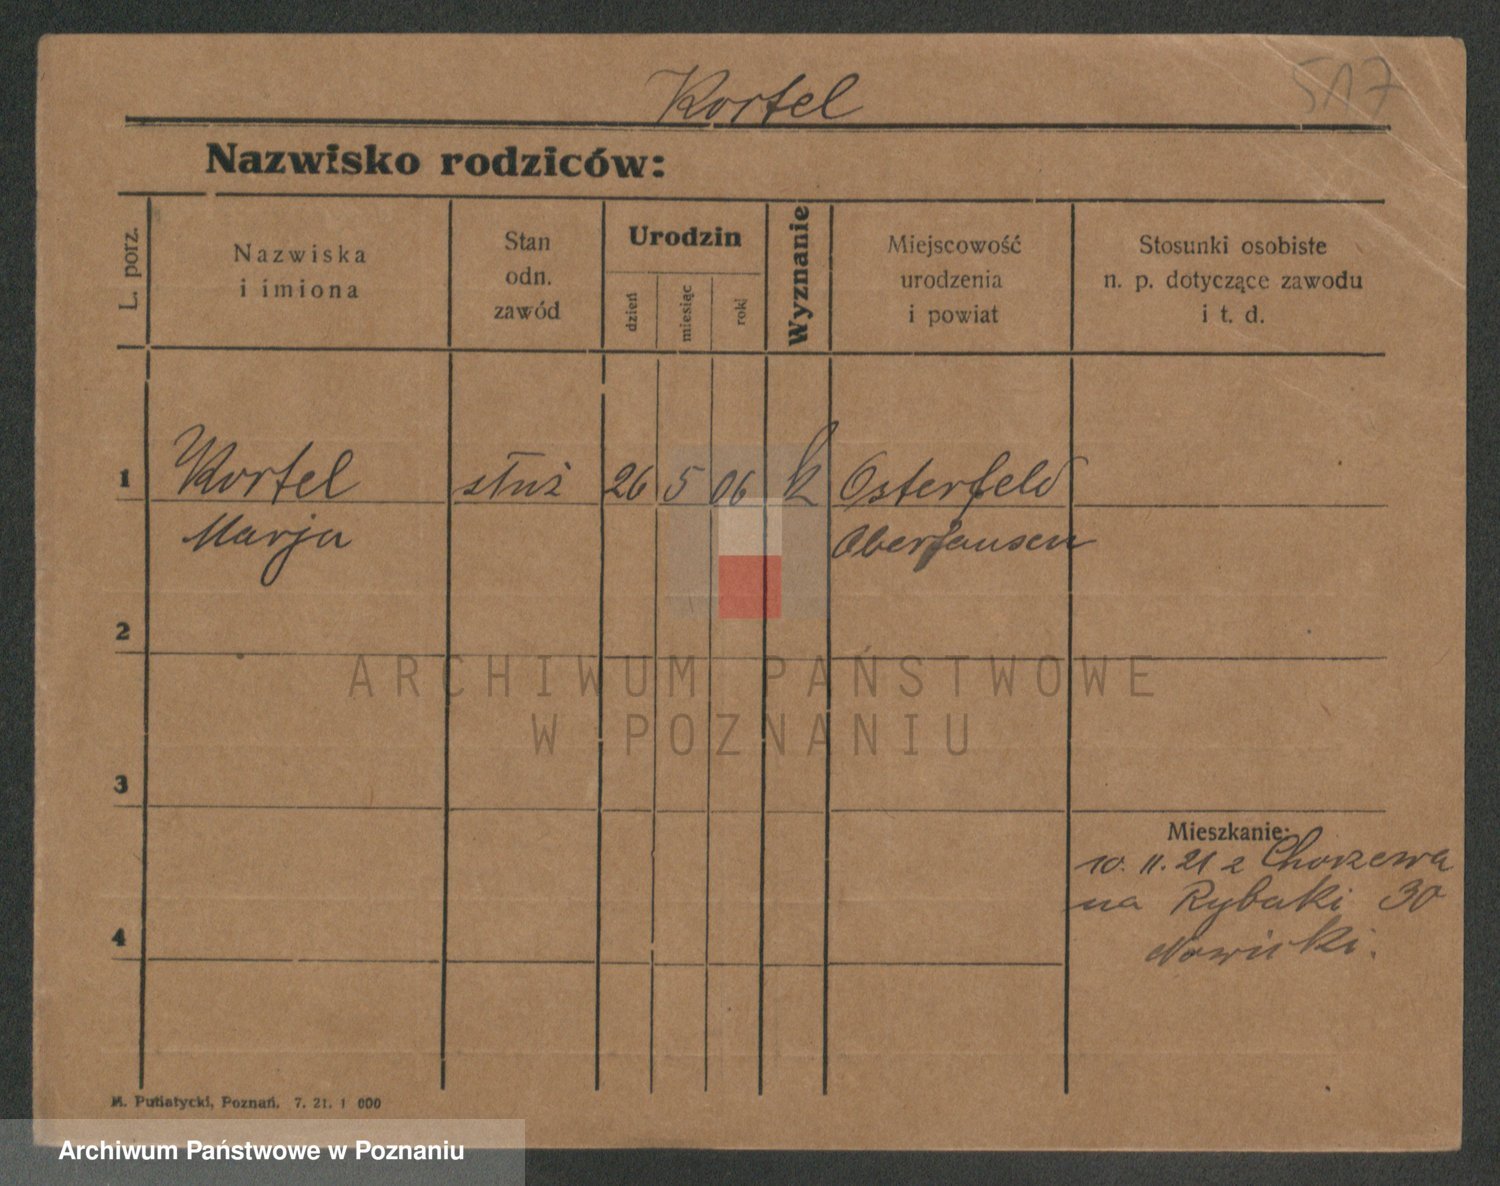 Kortel
517
Nazwisko rodziców:
L. porz.
Nazwiska
i imiona
Stan
odn.
zawód
Urodzin
dzień
miesiąc
rok
Wyznanie
Miejscowość
urodzenia
i powiat
Stosunki osobiste
n. p. dotyczące zawodu
i t. d.
1 Kortel służ 26 5 06 k Osterfeld
Marja Oberhausen
2
ARCHIWUM PAŃSTWOWE
W POZNANIU
3
Mieszkanie:
10. 11. 21 z Chorzewa
na Rybaki 30
4
M. Putiatycki, Poznań. 7. 21. 1 000
Archiwum Państwowe w Poznaniu